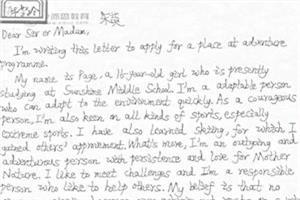 朱英
Dear Ser or Madam,
I'm writing this letter to apply for a place at adventure
programme.
My name is Page, a 16-year-old girl who is presently
studying at Sunshine Middle School. I'm a adaptable person
who can adapt to the environment quickly. As a courageous
person, I'm also keen on all kinds of sports, especially
extreme sports. I have also learned skiing, for which I
gained others' approvement. What's more, I'm an outgoing and
adventurous person with persistence and love for Mother
Nature. I like to meet challenges and I'm a responsible
person who like to help others. My belief is that no